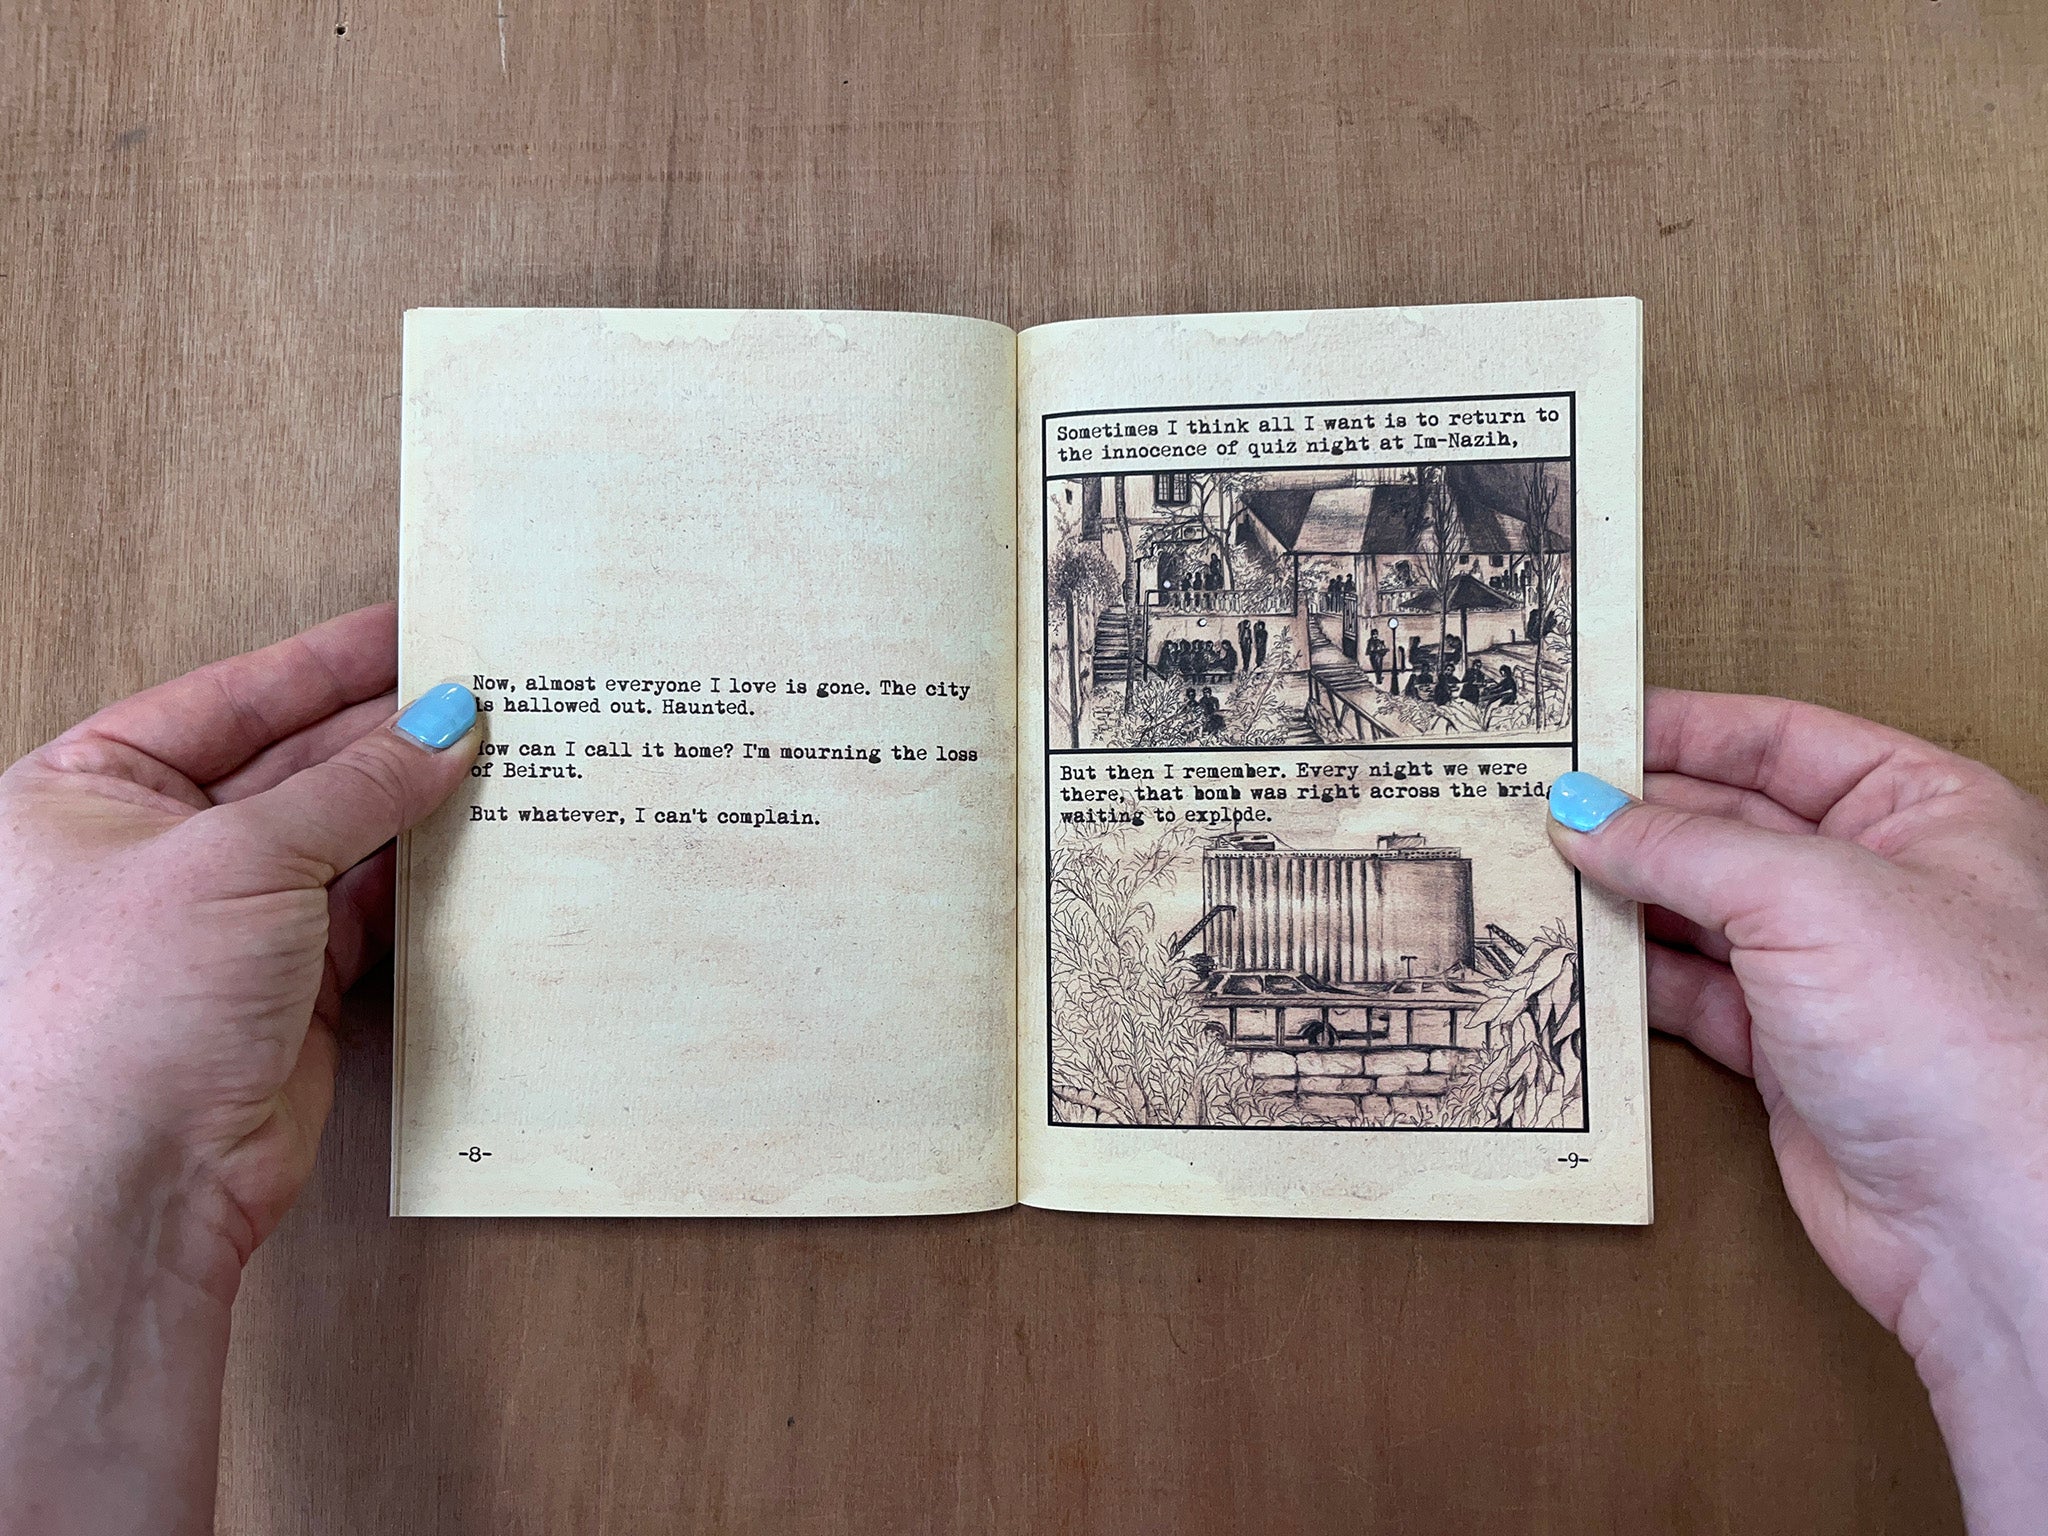 Now, almost everyone I love is gone. The city
is hallowed out. Haunted.
How can I call it home? I'm mourning the loss
of Beirut.
But whatever, I can't complain.
-8-
Sometimes I think all I want is to return to
the innocence of quiz night at Im-Nazih,
But then I remember. Every night we were
there, that bomb was right across the
waiting to explode.
-9-